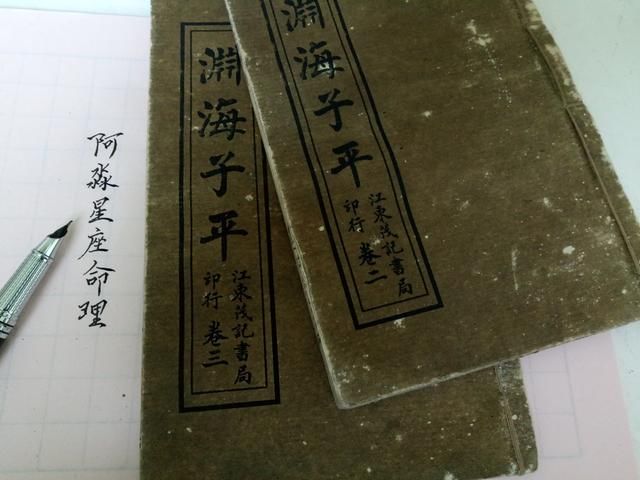 阿淼星座命理
淵海子平
江東茂記書局
印行
卷三
淵海子平
江東茂記書局
印行
卷二